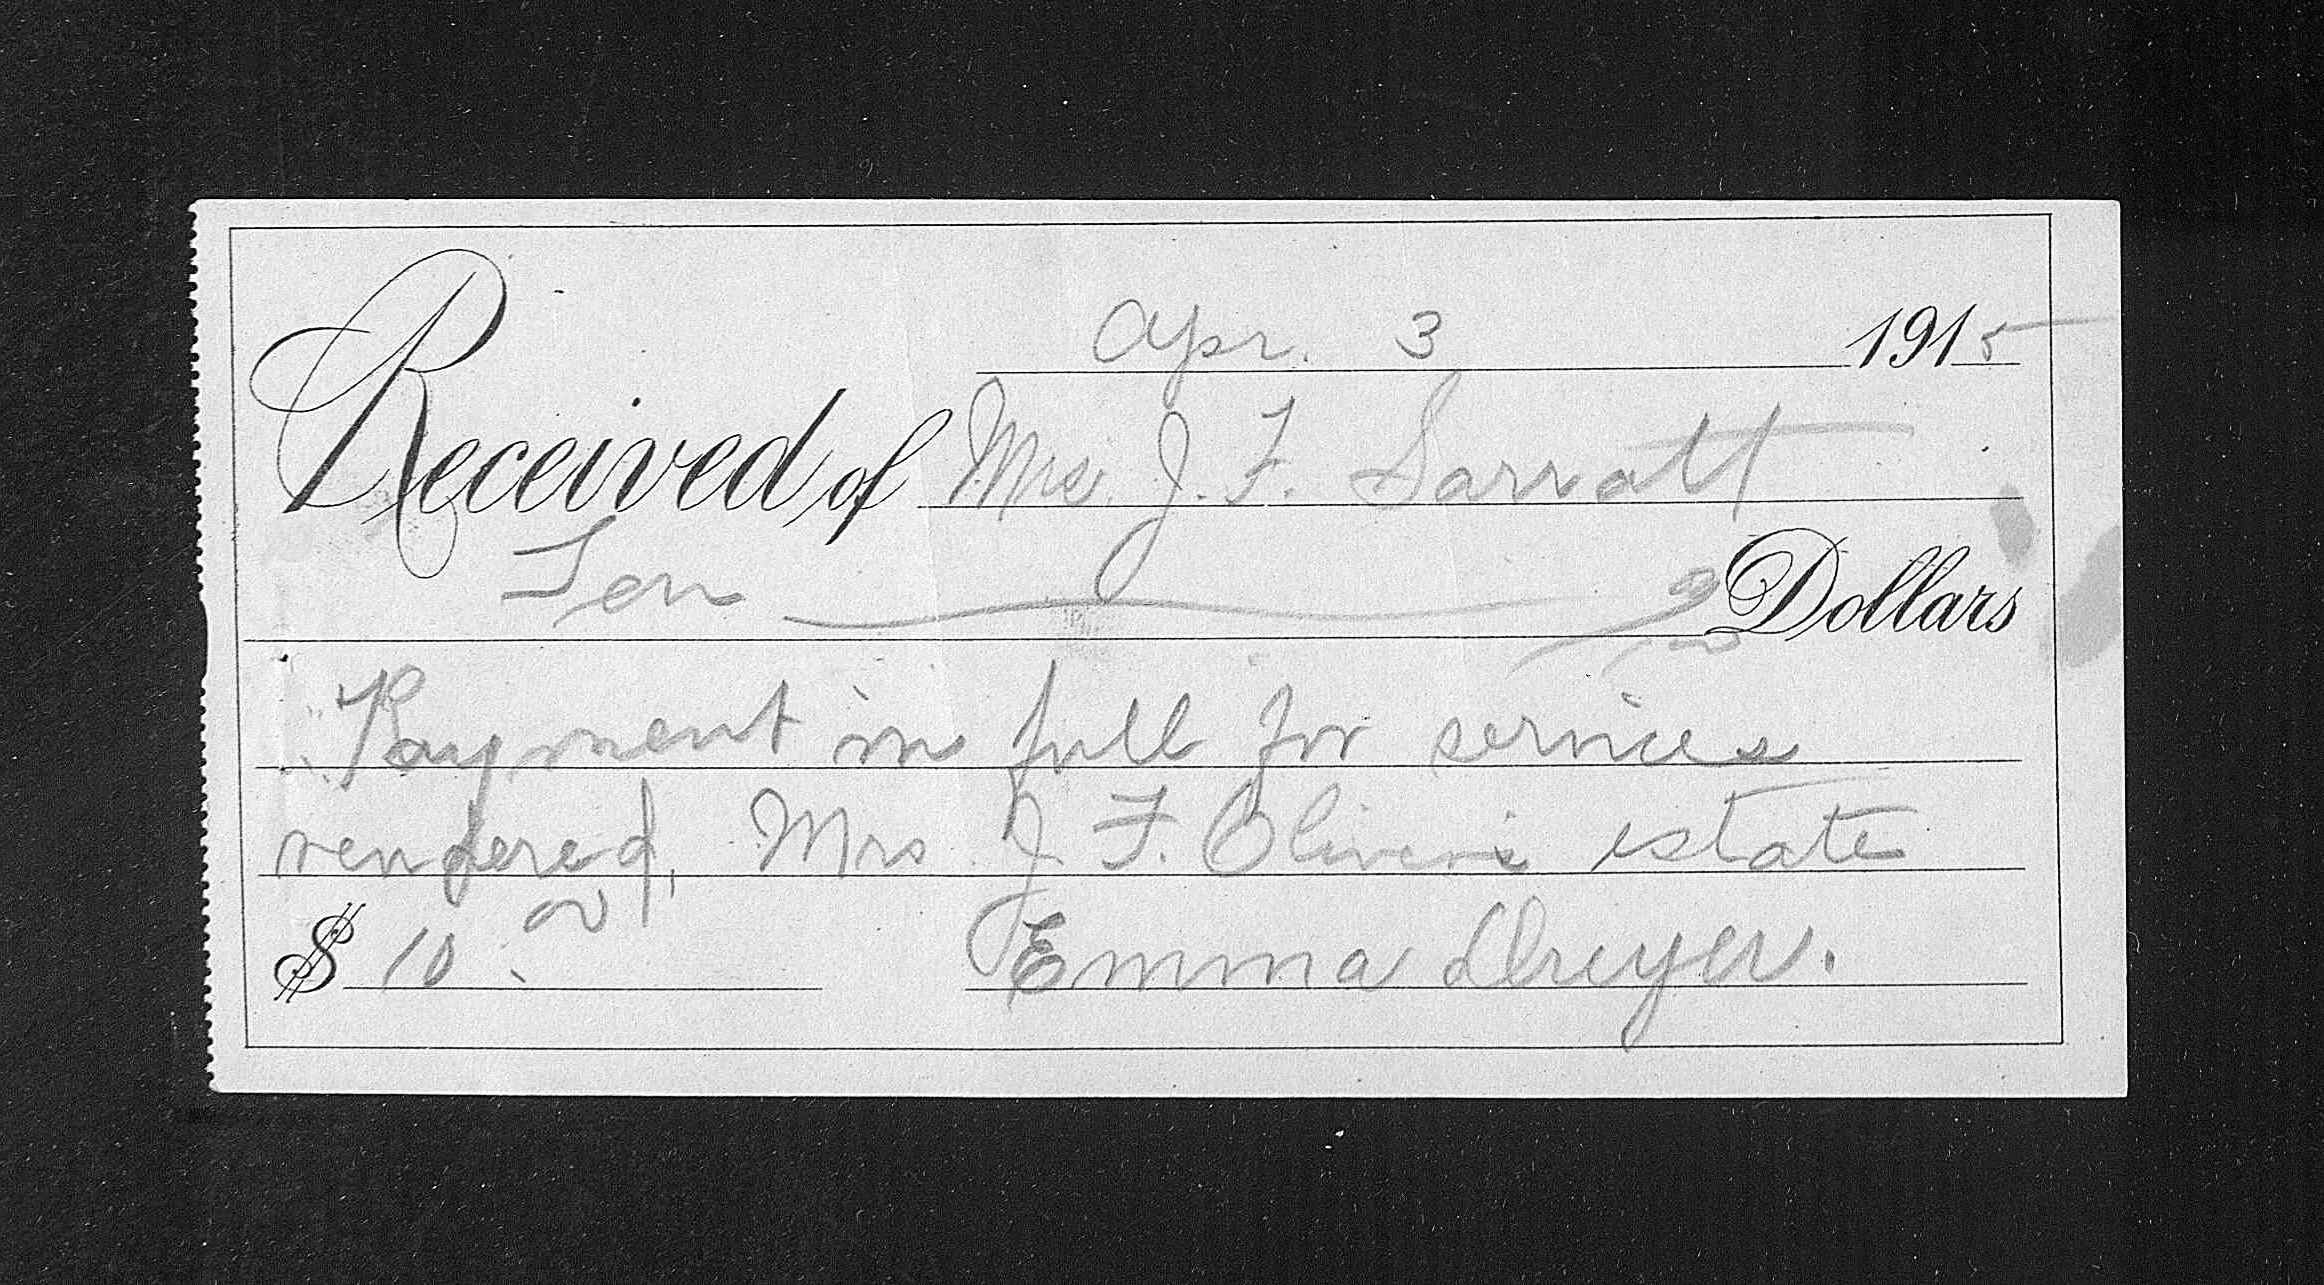 Apr. 3 1915
Received of Mrs. J. F. Sarratt
Ten Dollars
Payment in full for services
rendered, Mrs J. F. Oliver's estate
$ 10. Emma Dreyer.